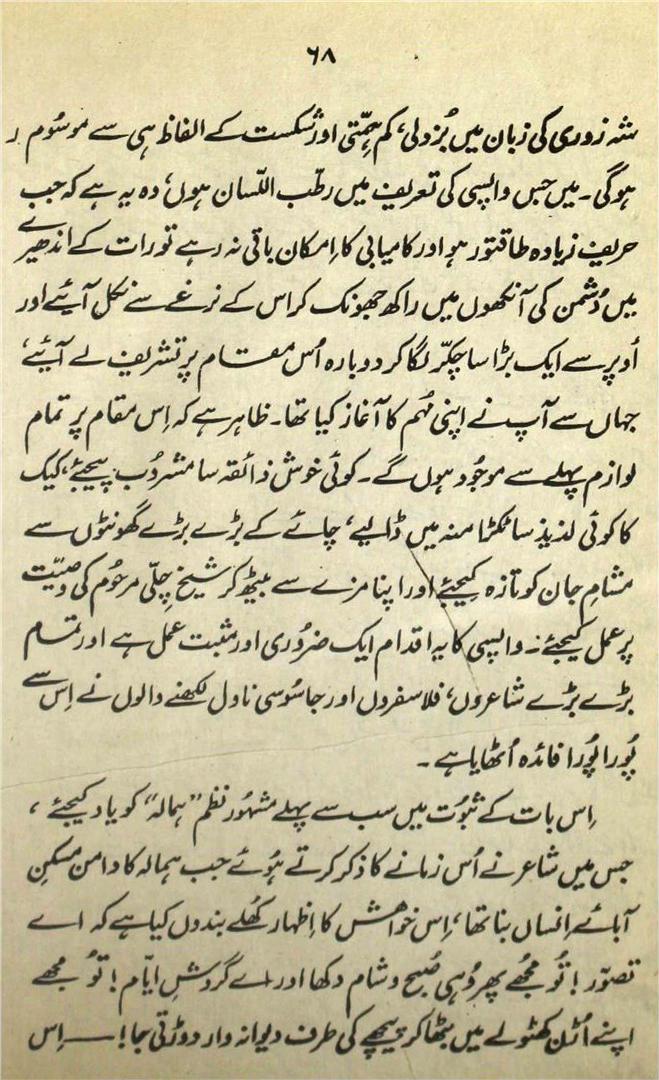 ۶۸
شہ زوری کی زبان میں بُزدلی، کم ہمّتی اور شکست کے الفاظ ہی سے موسُوم
ہوگی۔ میں جس واپسی کی تعریف میں رطب اللّسان ہوں، وہ یہ ہے کہ جب
حریف زیادہ طاقتور ہو اور کامیابی کا اِمکان باقی نہ رہے تو رات کے اندھیرے
میں دُشمن کی آنکھوں میں راکھ جھونک کر اس کے نرغے سے نکل آیئے اور
اُوپر سے ایک بڑا سا چکّر لگا کر دوبارہ اُس مقام پر تشریف لے آیئے،
جہاں سے آپ نے اپنی مُہم کا آغاز کیا تھا۔ ظاہر ہے کہ اِس مقام پر تمام
لوازم پہلے سے موجُود ہوں گے۔ کوئی خوش ذائقہ سا مشروُب پیجیئے، کیک
کا کوئی لذیذ سا ٹکڑا منہ میں ڈالیے، چائے کے بڑے بڑے گھونٹوں سے
مشامِ جان کو تازہ کیجیئے اور اپنا مزے سے بیٹھ کر شیخ چِلّی مرحُوم کی وصیّت
پر عمل کیجیئے۔ واپسی کا یہ اقدام ایک ضرُوری اور مثبت عمل ہے اور تمام
بڑے بڑے شاعروں، فلاسفروں اور جاسُوسی ناول لکھنے والوں نے اِس سے
پُورا پُورا فائدہ اُٹھایا ہے۔
اِس بات کے ثبُوت میں سب سے پہلے مشہُور نظم ”ہمالہ“ کو یاد کیجیئے،
جس میں شاعر نے اُس زمانے کا ذکر کرتے ہُوئے جب ہمالہ کا دامن مسکنِ
آبائے اِنساں بنا تھا، اِس خواہش کا اِظہار کھُلے بندوں کیا ہے کہ اے
تصوّر! تُو مُجھے پھر وُہی صُبح و شام دکھا اور اے گردشِ ایّام! تُو مجھے
اپنے اُڑن کھٹولے میں بٹھا کر پیچھے کی طرف دیوانہ وار دوڑتی جا! — اِس